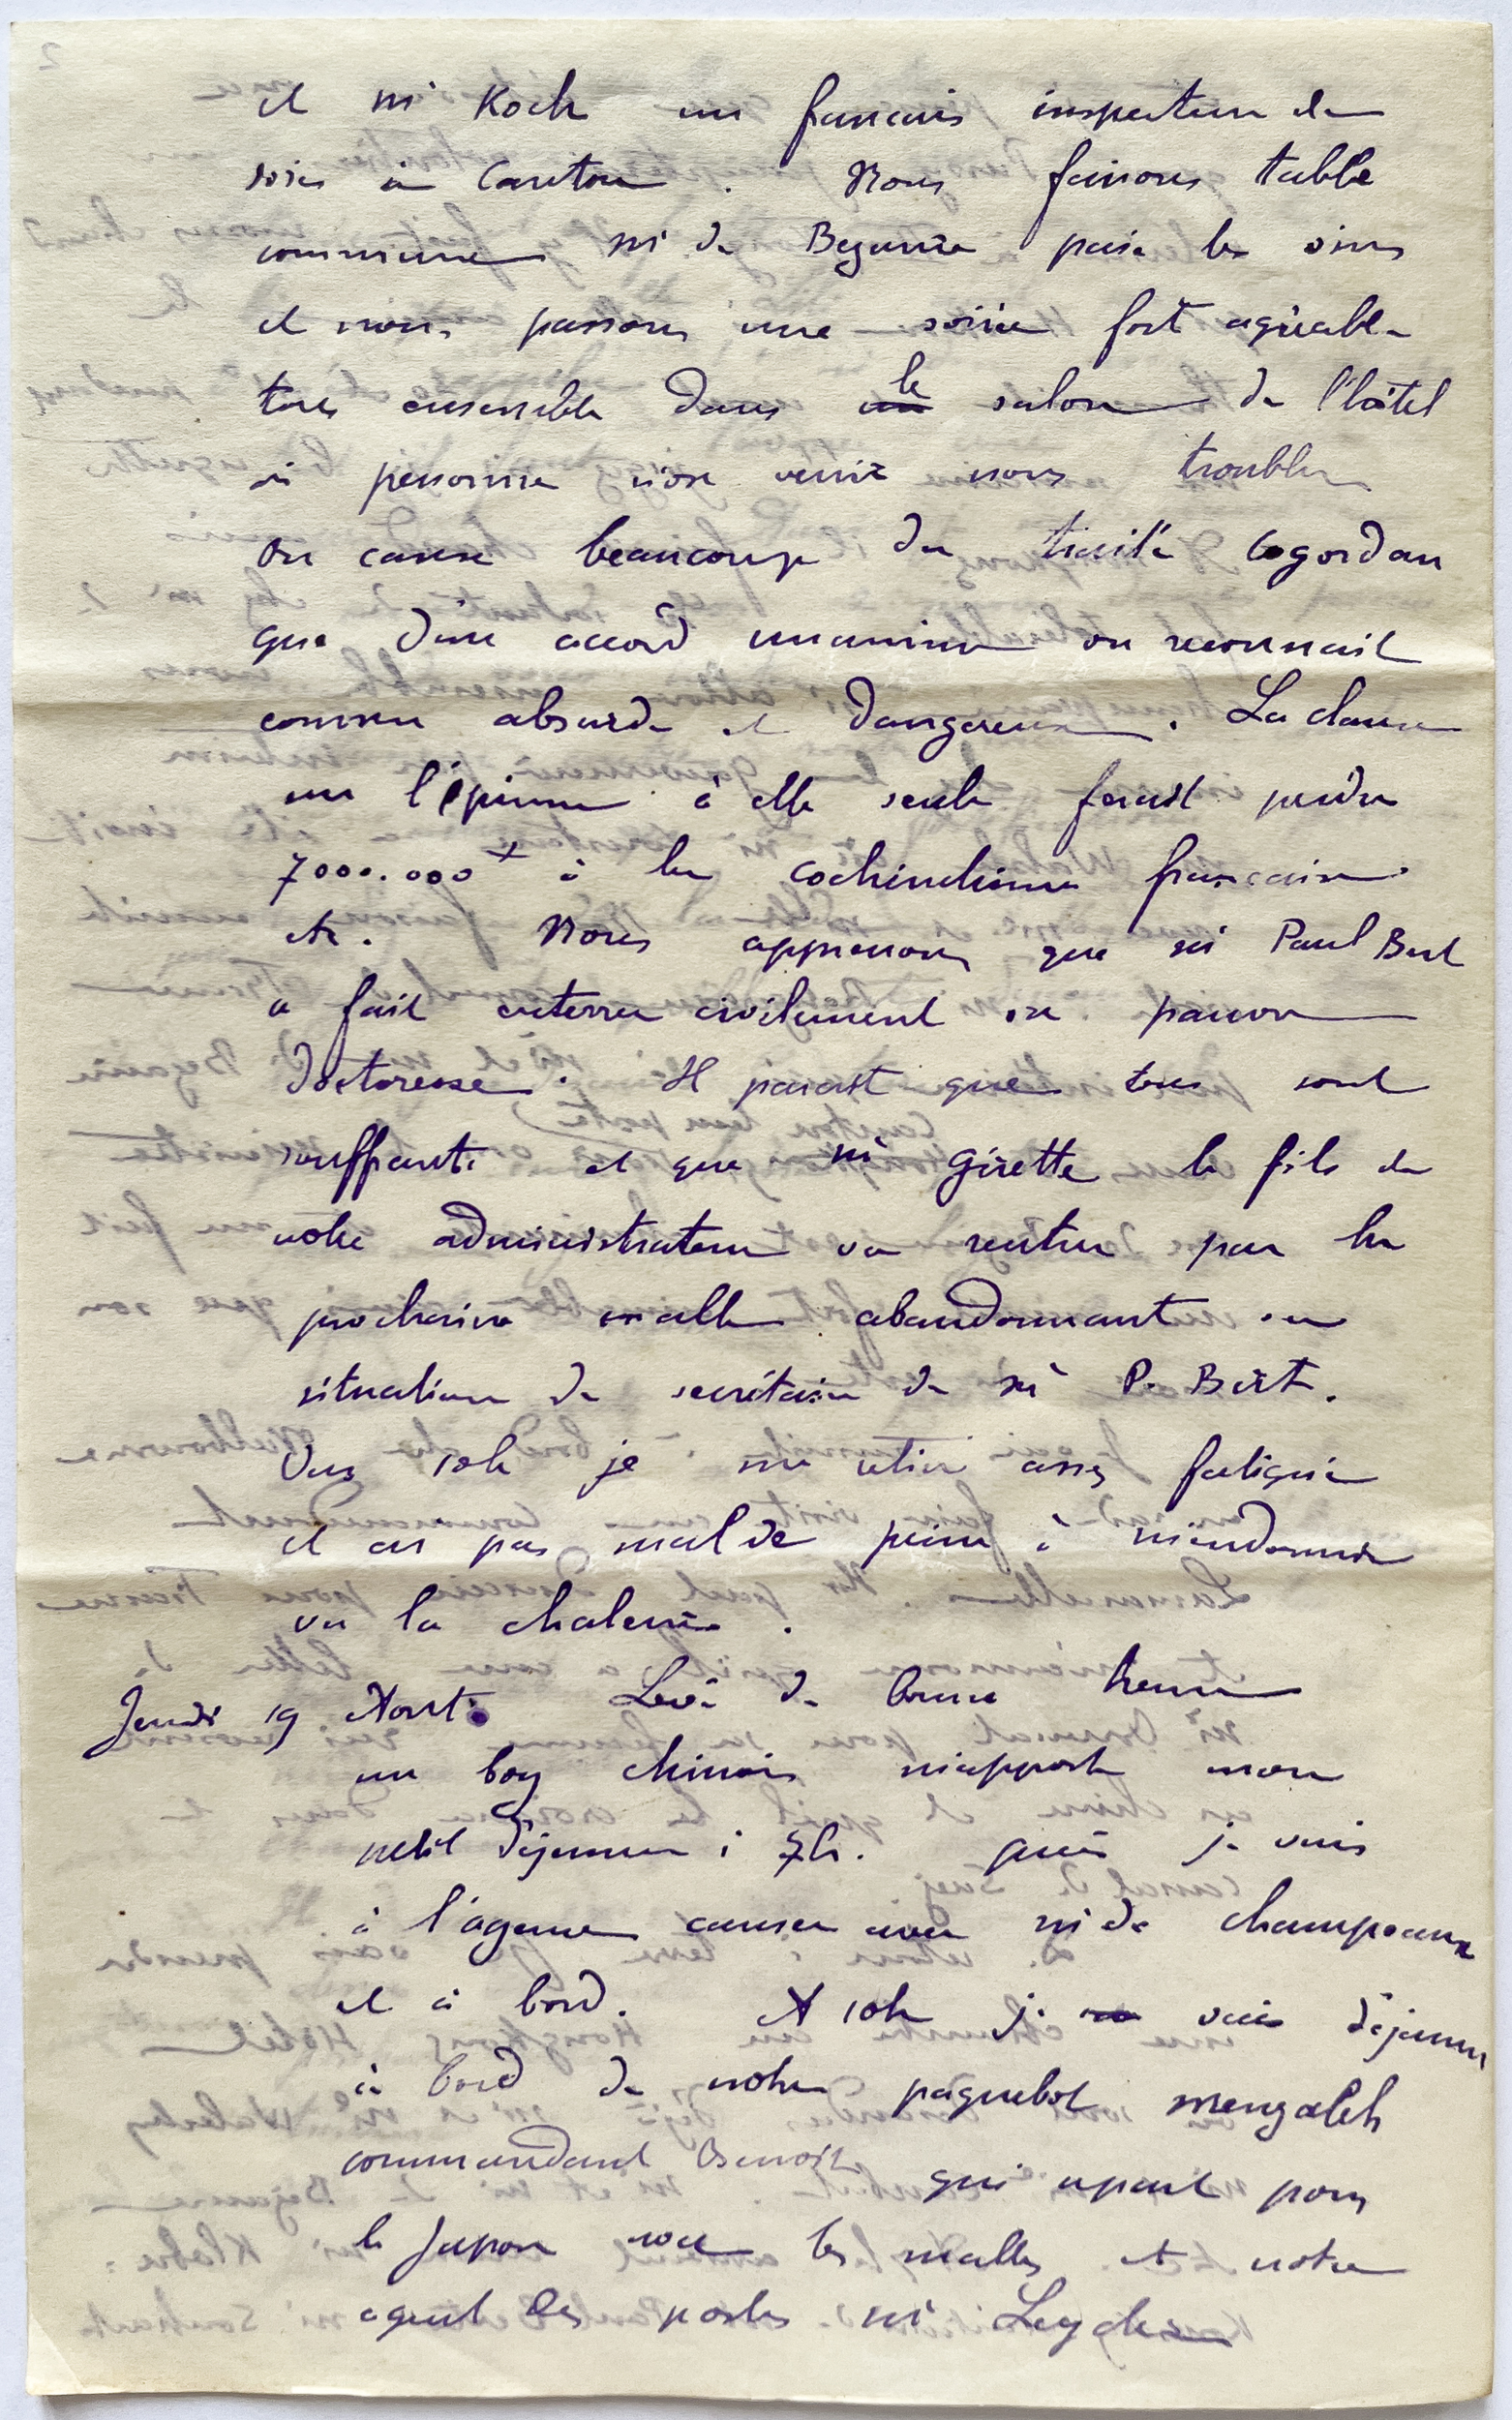 et Mr Koch un français inspecteur de
soies à Canton. Nous faisons table
commune Mr de Bezaure paie les vins
et nous passons une soirée fort agréable
tous ensemble dans un le salon de l'hôtel
où personne n'ose venir nous troubler
On cause beaucoup du traité Cogordan
que d'un accord unanime on reconnait
comme absurde et dangereux. La clause
sur l'opium à elle seule ferait perdre
7000.000 f à la Cochinchine française
etc. Nous apprenons que Mr Paul Bert
a fait enterrer civilement sa pauvre
doctoresse. Il parait que tous sont
souffrants et que Mr Girette le fils de
notre administrateur va rentrer par la
prochaine malle abandonnant sa
situation de secrétaire de Mr P. Bert.
Vers 10h je me retire assez fatigué
et ai pas mal de peine à m'endormir
vu la chaleur.
Jeudi 19 Aout. Levé de bonne heure
un boy chinois m'apporte mon
petit déjeuner à 7h. puis je vais
à l'agence causer avec Mr de Champeaux
et à bord. A 10h je vais déjeuner
à bord de notre paquebot Menzaleh
commandant Benoit qui repart pour
le Japon avec les malles et notre
agent des postes Mr